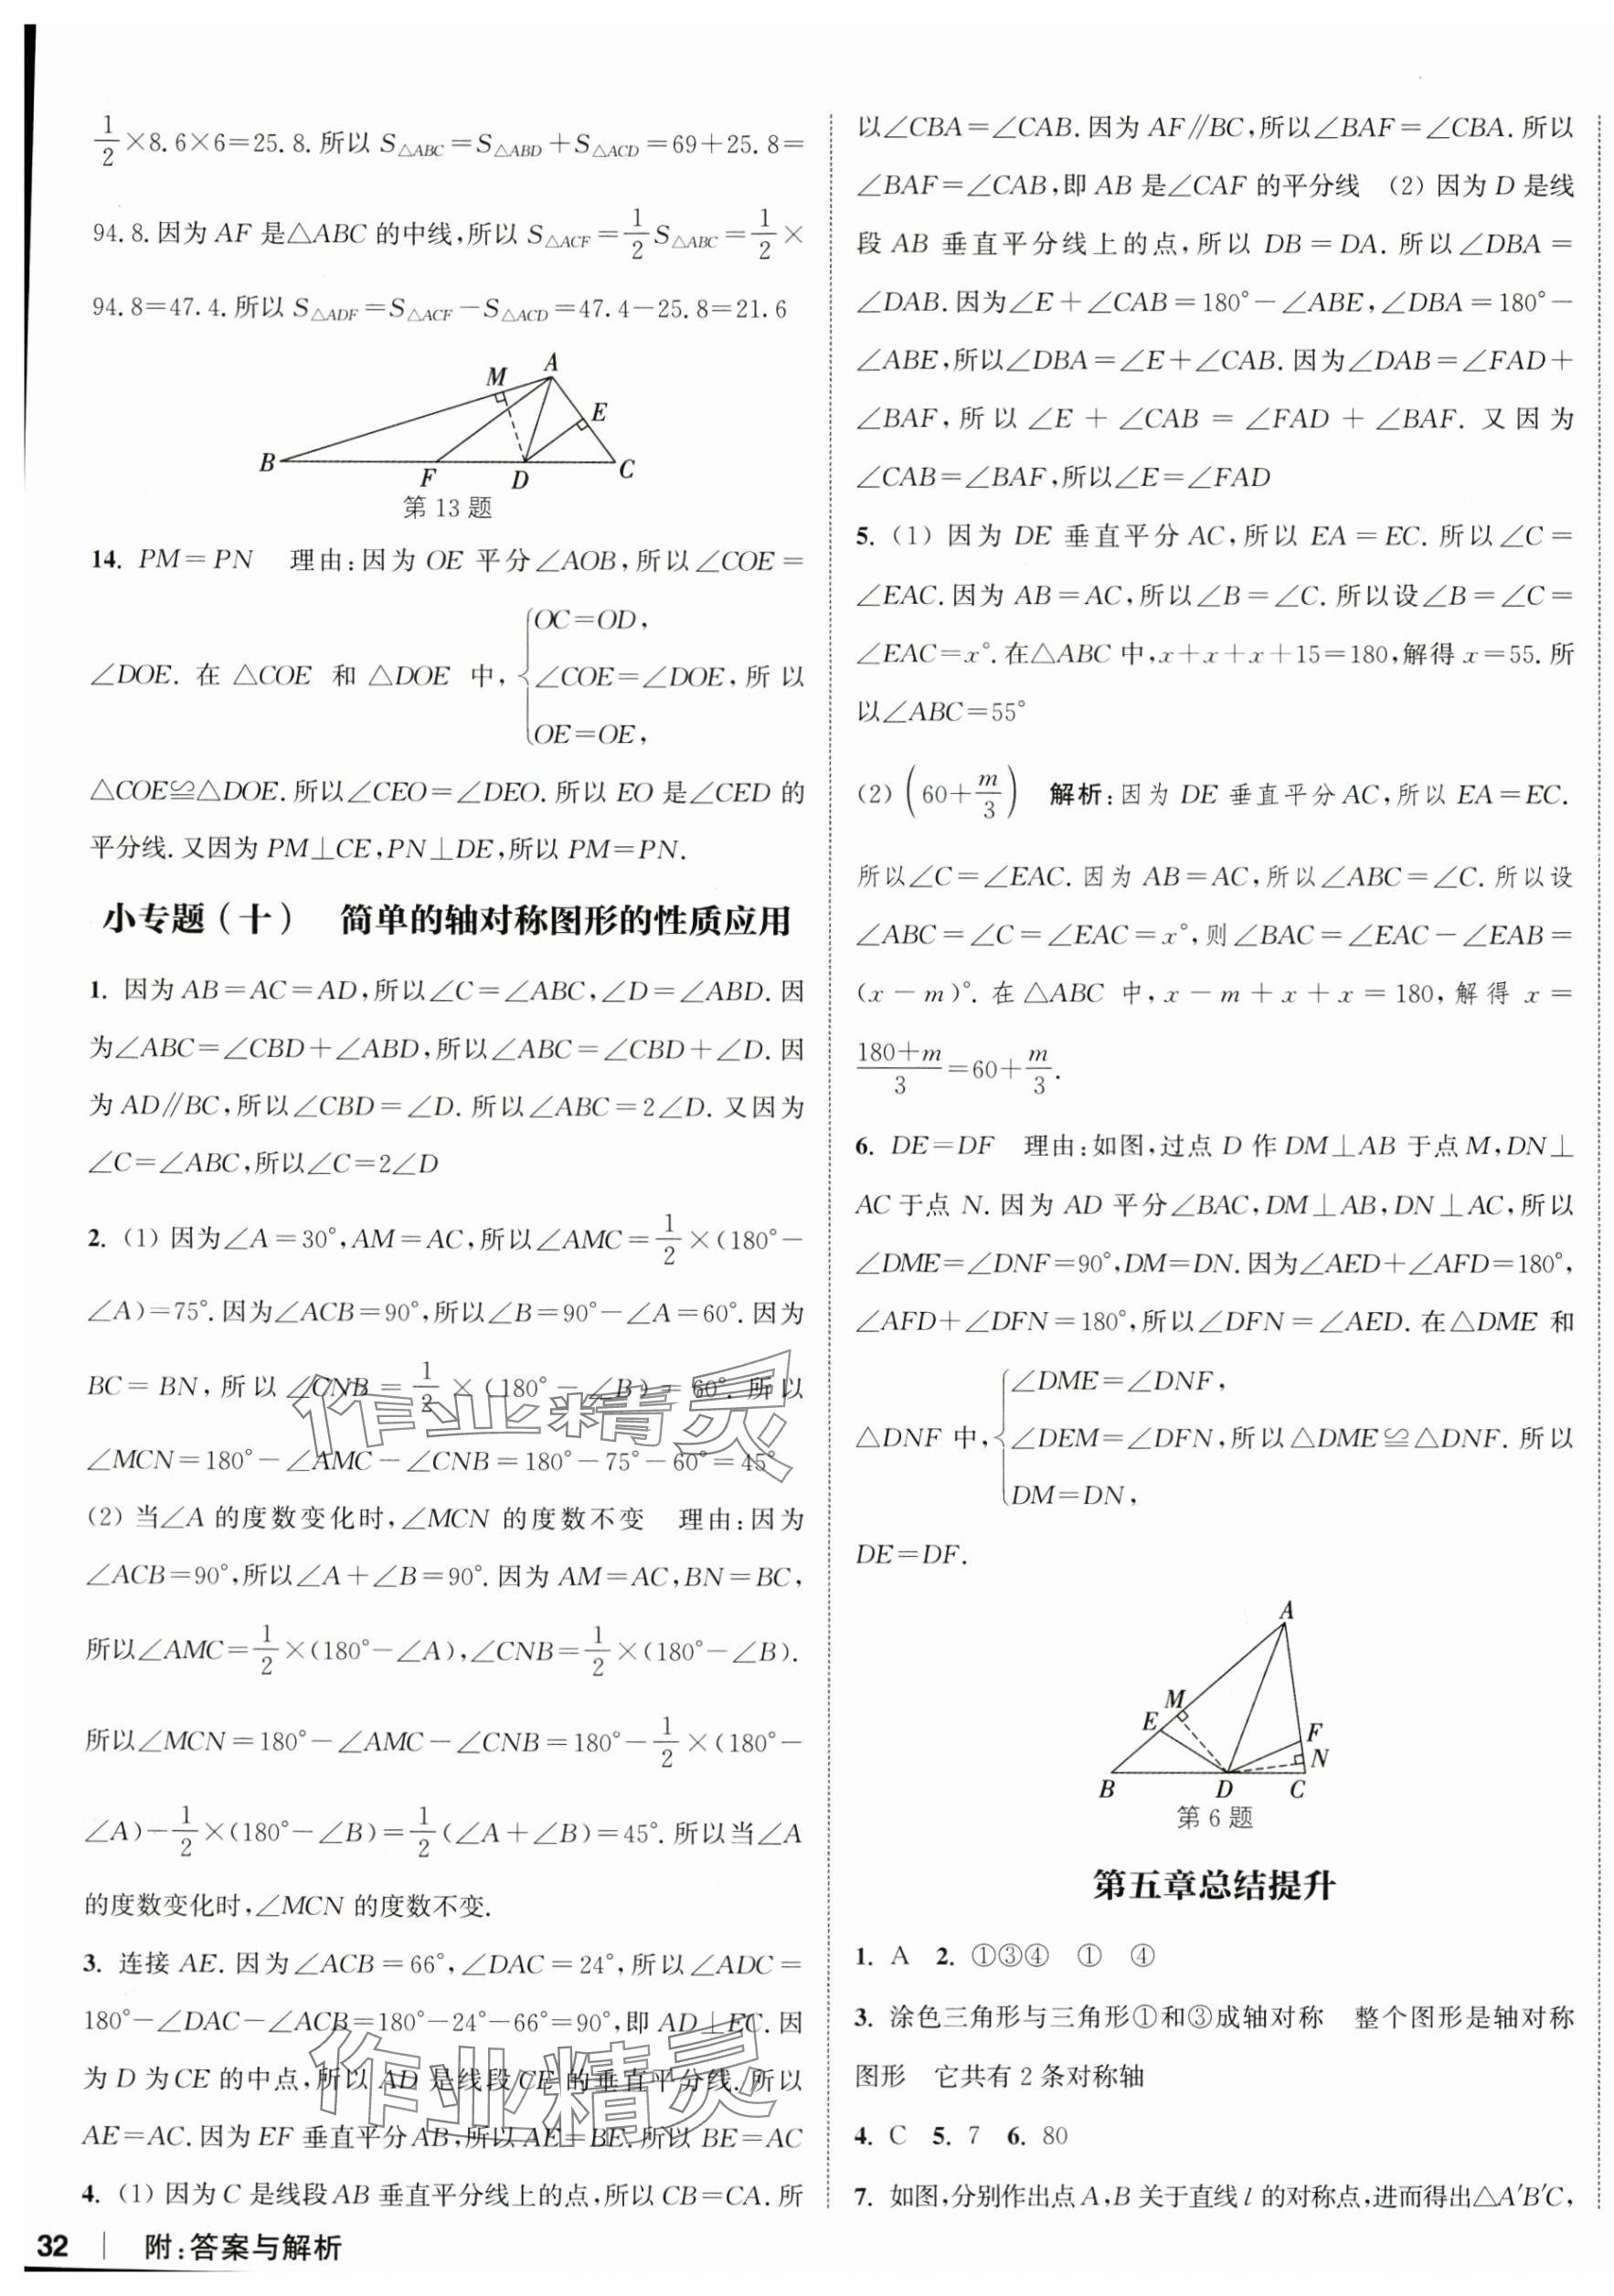 1/2×8.6×6=25.8.所以 S△ABC=S△ABD+S△ACD=69+25.8=
94.8.因为 AF 是△ABC 的中线,所以 S△ACF=1/2 S△ABC=1/2×
94.8=47.4.所以 S△ADF=S△ACF-S△ACD=47.4-25.8=21.6
M
A
E
B
F
D
C
第 13 题
14. PM=PN 理由:因为 OE 平分∠AOB,所以∠COE=
∠DOE. 在 △COE 和 △DOE 中, { OC=OD,
∠COE=∠DOE, 所以
OE=OE,
△COE≌△DOE.所以∠CEO=∠DEO.所以 EO 是∠CED 的
平分线.又因为 PM⊥CE,PN⊥DE,所以 PM=PN.
小专题(十) 简单的轴对称图形的性质应用
1. 因为 AB=AC=AD,所以∠C=∠ABC,∠D=∠ABD.因
为∠ABC=∠CBD+∠ABD,所以∠ABC=∠CBD+∠D.因
为 AD∥BC,所以∠CBD=∠D.所以∠ABC=2∠D.又因为
∠C=∠ABC,所以∠C=2∠D
2. (1) 因为∠A=30°,AM=AC,所以∠AMC=1/2×(180°-
∠A)=75°.因为∠ACB=90°,所以∠B=90°-∠A=60°.因为
BC=BN,所以∠CNB=1/2×(180°-∠B)=60°.所以
∠MCN=180°-∠AMC-∠CNB=180°-75°-60°=45°
(2) 当∠A 的度数变化时,∠MCN 的度数不变 理由:因为
∠ACB=90°,所以∠A+∠B=90°.因为 AM=AC,BN=BC,
所以∠AMC=1/2×(180°-∠A),∠CNB=1/2×(180°-∠B).
所以∠MCN=180°-∠AMC-∠CNB=180°-1/2×(180°-
∠A)-1/2×(180°-∠B)=1/2(∠A+∠B)=45°.所以当∠A
的度数变化时,∠MCN 的度数不变.
3. 连接 AE.因为∠ACB=66°,∠DAC=24°,所以∠ADC=
180°-∠DAC-∠ACB=180°-24°-66°=90°,即 AD⊥EC.因
为 D 为CE 的中点,所以 AD 是线段CE 的垂直平分线.所以
AE=AC.因为 EF 垂直平分AB,所以AE=BE.所以 BE=AC
4. (1) 因为 C 是线段 AB 垂直平分线上的点,所以 CB=CA.所
作业精灵
作业精灵
32 附:答案与解析
以∠CBA=∠CAB.因为 AF∥BC,所以∠BAF=∠CBA.所以
∠BAF=∠CAB,即 AB 是∠CAF 的平分线 (2) 因为 D 是线
段 AB 垂直平分线上的点,所以 DB=DA.所以∠DBA=
∠DAB.因为∠E+∠CAB=180°-∠ABE,∠DBA=180°-
∠ABE,所以∠DBA=∠E+∠CAB.因为∠DAB=∠FAD+
∠BAF,所以 ∠E+∠CAB=∠FAD+∠BAF. 又因为
∠CAB=∠BAF,所以∠E=∠FAD
5. (1) 因为 DE 垂直平分 AC,所以 EA=EC.所以∠C=
∠EAC.因为 AB=AC,所以∠B=∠C.所以设∠B=∠C=
∠EAC=x°.在△ABC 中,x+x+x+15=180,解得 x=55.所
以∠ABC=55°
(2) (60+m/3) 解析:因为 DE 垂直平分 AC,所以 EA=EC.
所以∠C=∠EAC.因为 AB=AC,所以∠ABC=∠C.所以设
∠ABC=∠C=∠EAC=x°,则∠BAC=∠EAC-∠EAB=
(x-m)°.在△ABC 中,x-m+x+x=180,解得 x=
(180+m)/3=60+m/3.
6. DE=DF 理由:如图,过点 D 作 DM⊥AB 于点 M,DN⊥
AC于点 N.因为 AD 平分∠BAC,DM⊥AB,DN⊥AC,所以
∠DME=∠DNF=90°,DM=DN.因为∠AED+∠AFD=180°,
∠AFD+∠DFN=180°,所以∠DFN=∠AED.在△DME 和
△DNF 中, { ∠DME=∠DNF,
∠DEM=∠DFN,所以△DME≌△DNF.所以
DM=DN,
DE=DF.
A
M
E
F
N
B
D
C
第 6 题
第五章总结提升
1. A 2. ①③④ ① ④
3. 涂色三角形与三角形①和③成轴对称 整个图形是轴对称
图形 它共有 2 条对称轴
4. C 5. 7 6. 80
7. 如图,分别作出点 A,B 关于直线 l 的对称点,进而得出△A′B′C,